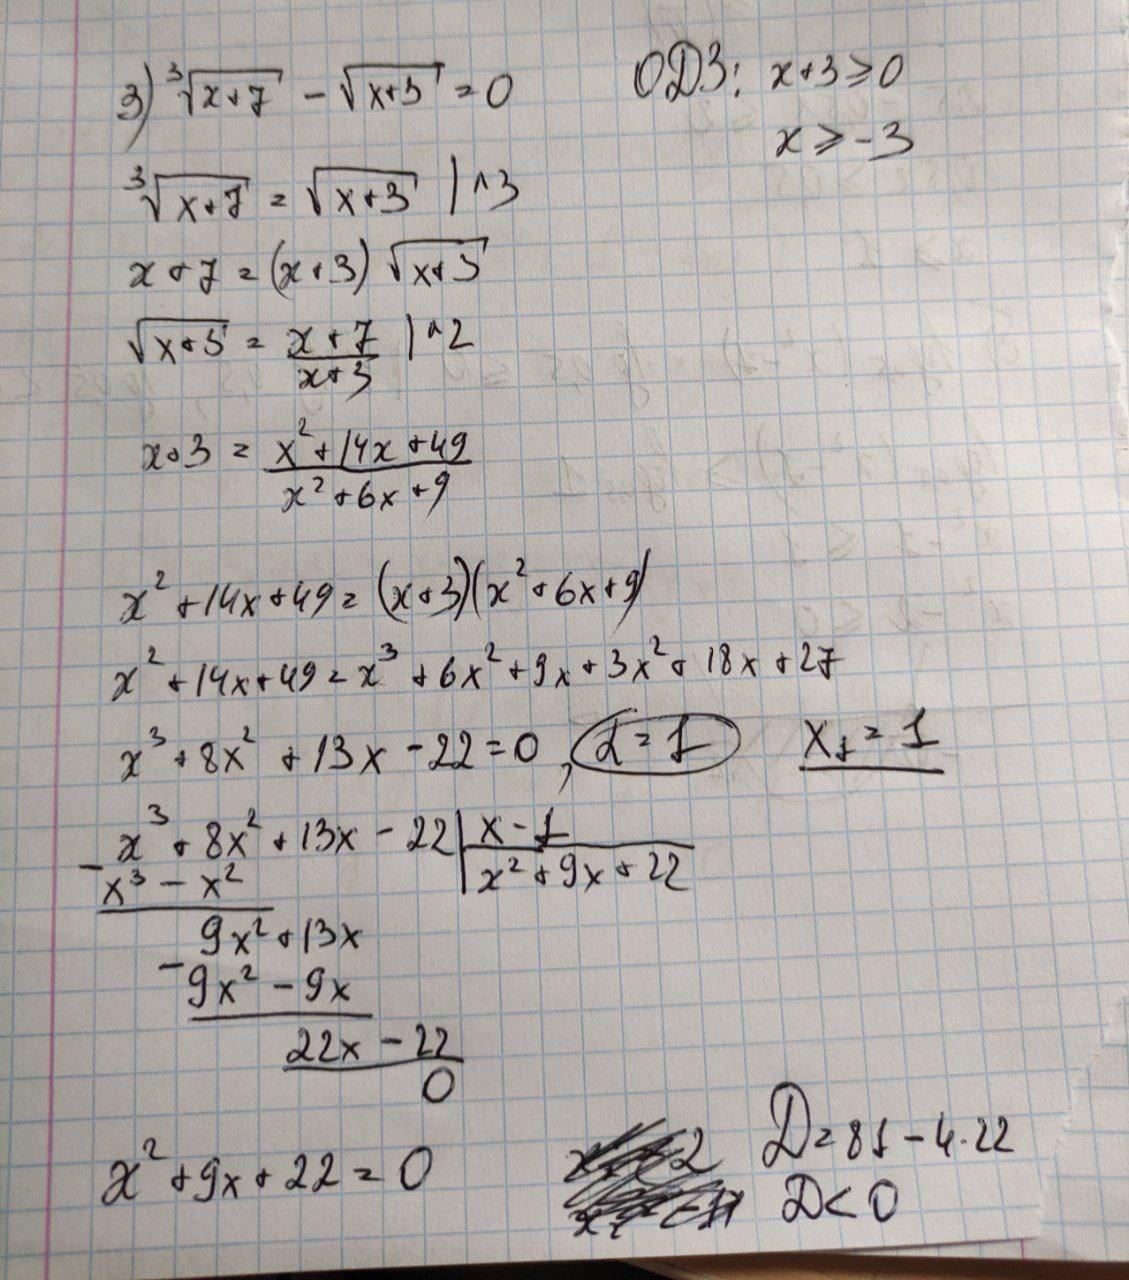 3) ³√(x+7) − √(x+3) = 0
ОДЗ: x+3 ≥ 0
x ≥ −3
³√(x+7) = √(x+3) | ^3
x+7 = (x+3) √(x+3)
√(x+3) = (x+7)/(x+3) | ^2
x+3 = (x²+14x+49)/(x²+6x+9)
x²+14x+49 = (x+3)(x²+6x+9)
x²+14x+49 = x³+6x²+9x+3x²+18x+27
x³+8x²+13x−22=0, α=1 x₁=1
x³+8x²+13x−22 | x−1
− x³−x² | x²+9x+22
9x²+13x
− 9x²−9x
22x−22
0
x²+9x+22=0
D=81−4·22
D<0